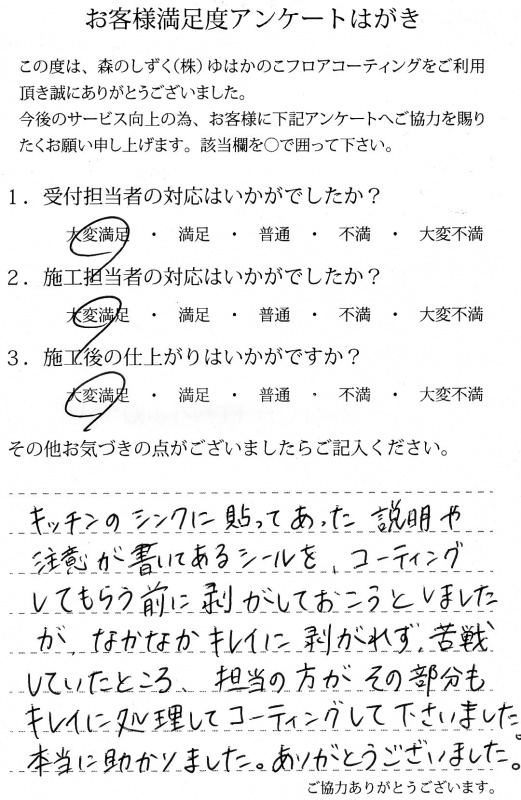 お客様満足度アンケートはがき
この度は、森のしずく(株)ゆはかのこフロアコーティングをご利用
頂き誠にありがとうございました。
今後のサービス向上の為、お客様に下記アンケートへご協力を賜り
たくお願い申し上げます。該当欄を○で囲って下さい。
1．受付担当者の対応はいかがでしたか？
大変満足 ・ 満足 ・ 普通 ・ 不満 ・ 大変不満
2．施工担当者の対応はいかがでしたか？
大変満足 ・ 満足 ・ 普通 ・ 不満 ・ 大変不満
3．施工後の仕上がりはいかがですか？
大変満足 ・ 満足 ・ 普通 ・ 不満 ・ 大変不満
その他お気づきの点がございましたらご記入ください。
キッチンのシンクに貼ってあった説明や
注意が書いてあるシールを、コーティング
してもらう前に剥がしておこうとしました
が、なかなかキレイに剥がれず、苦戦
していたところ、担当の方がその部分も
キレイに処理してコーティングして下さいました。
本当に助かりました。ありがとうございました。
ご協力ありがとうございます。